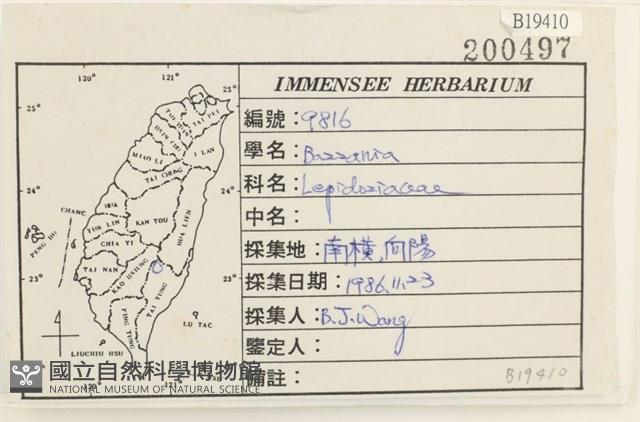 B19410
200497
IMMENSEE HERBARIUM
編號：9816
學名：Bazzania
科名：Lepidoziaceae
中名：
採集地：南橫,向陽
採集日期：1986.11.23
採集人：B.J.Wang
鑒定人：
備註：
B19410
120° 121°
25° 25°
TAI PEI
I LAN
MIAO LI
TAI CHUNG
24° 24°
CHANG HUA
NAN TOU
HUA LIEN
YUN LIN
PENG HU
CHIA YI
TAI NAN
KAO HSIUNG
23° 23°
TAI TUNG
PING TUNG
LU TAO
LIUCHIU HSU
120° 121°
國立自然科學博物館
NATIONAL MUSEUM OF NATURAL SCIENCE